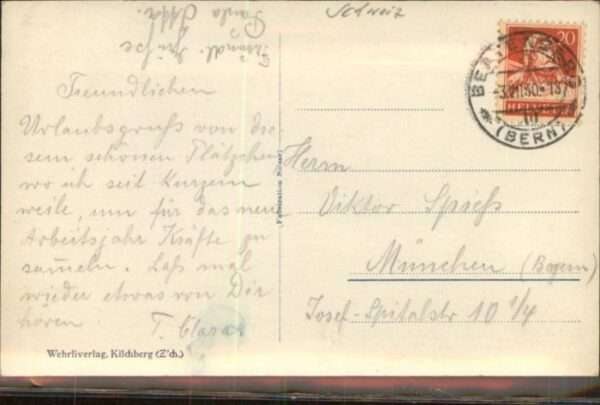 Schweiz
Freundl. Grüße
Freundlichen
Urlaubsgruß von die-
sem schönen Plätzchen
wo ich seit Kurzem
weile, um für das neue
Arbeitsjahr Kräfte zu
sam̄eln. Laß mal
wieder etwas von Dir
hören
T. Clara
Herrn
Viktor Spieß
München (Bayern)
Josef-Spitalstr 10 1/4
Wehrliverlag, Kilchberg (Z'ch.)
20
HELVETIA
(BERN)